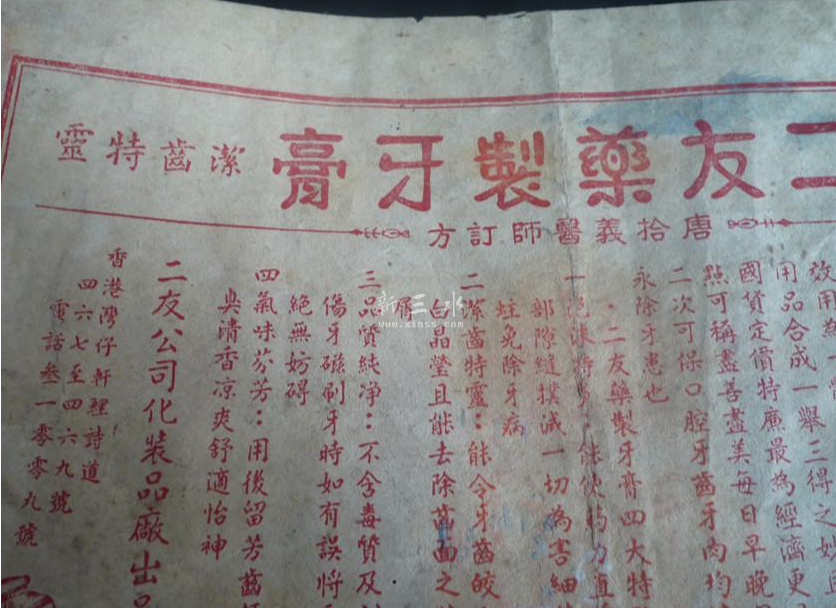 二友藥製牙膏 潔齒特靈
唐拾義醫師訂方
效用
用品合成一舉三得之妙
國貨定價特廉最為經濟更
點可稱盡善盡美每日早晚
二次可保口腔牙齒牙肉均
永除牙患也
：二友藥製牙膏四大特
一泡沫特多：能使药力直
部隙縫撲滅一切為害細
蛀免除牙病
二潔齒特靈：能令牙齒皎
白晶瑩且能去除齒面之
屑
三品質純净：不含毒質及
傷牙磁刷牙時如有誤將
絕無妨碍
四氣味芬芳：用後留芳齒
臭清香凉爽舒適怡神
二友公司化装品廠出品
香港灣仔軒鯉詩道
四六七至四六九號
電話叁一零零九號
新三水
www.xinss.com